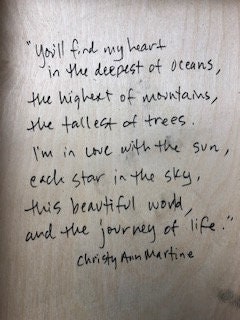 "You'll find my heart
in the deepest of oceans,
the highest of mountains,
the tallest of trees.
I'm in love with the sun,
each star in the sky,
this beautiful world,
and the journey of life."
Christy Ann Martine